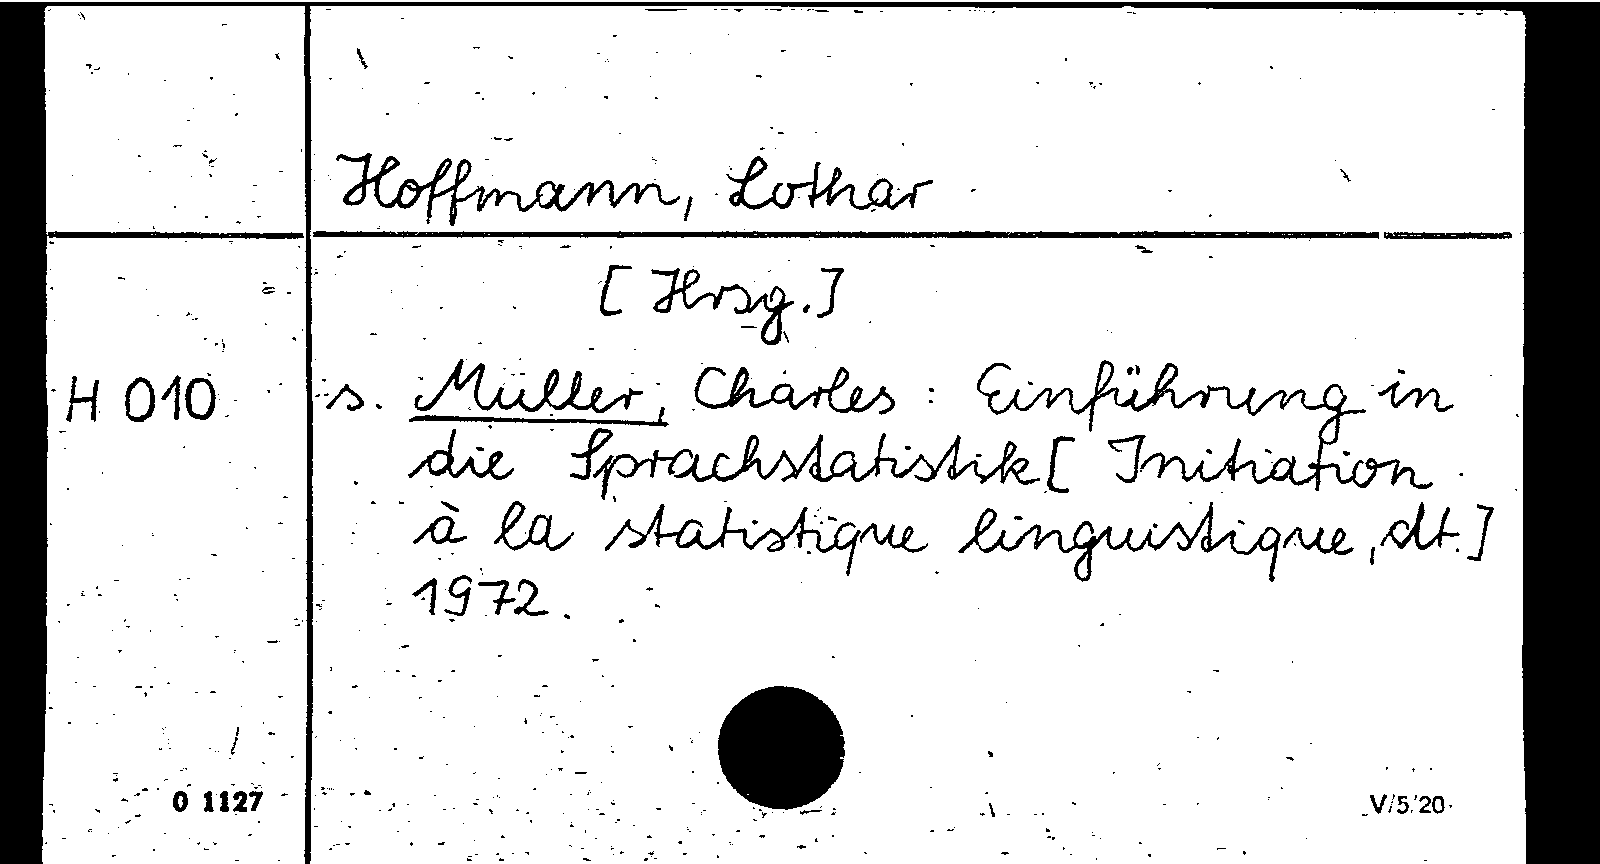 Hoffmann, Lothar
[Hrsg.]
H 010 s. Muller, Charles: Einführung in
die Sprachstatistik [Initiation
à la statistique linguistique, dt.]
1972.
O 1127 V/5/20